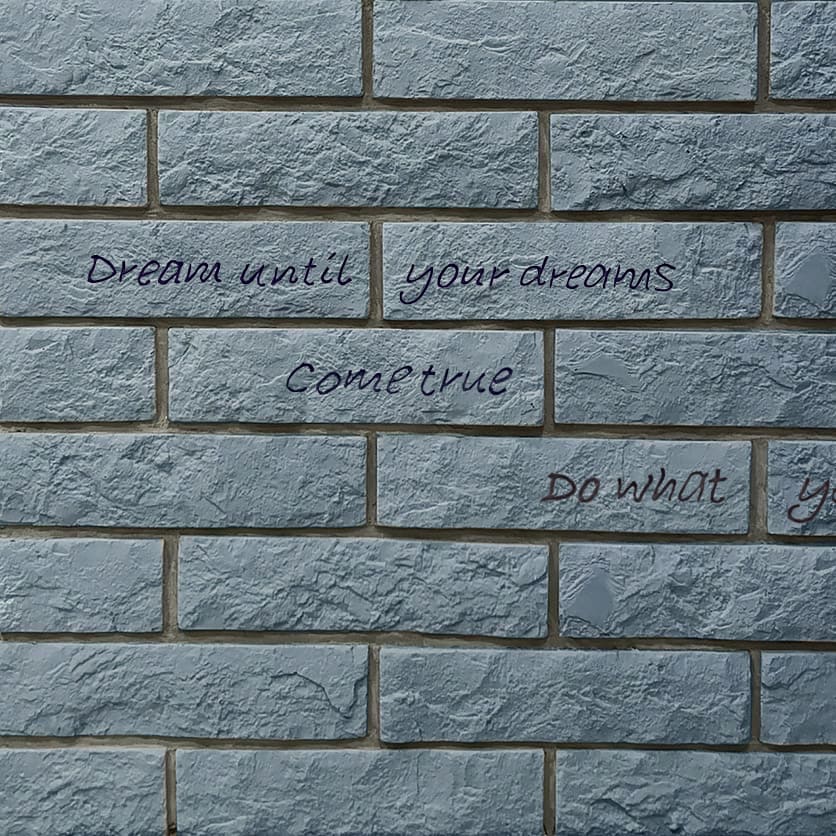 Dream until your dreams
Come true
Do what